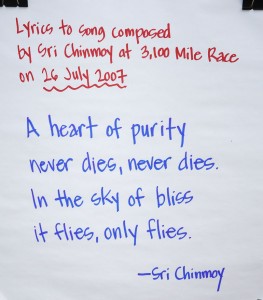 Lyrics to song composed
by Sri Chinmoy at 3,100 Mile Race
on 26 July 2007
A heart of purity
never dies, never dies.
In the sky of bliss
it flies, only flies.
—Sri Chinmoy